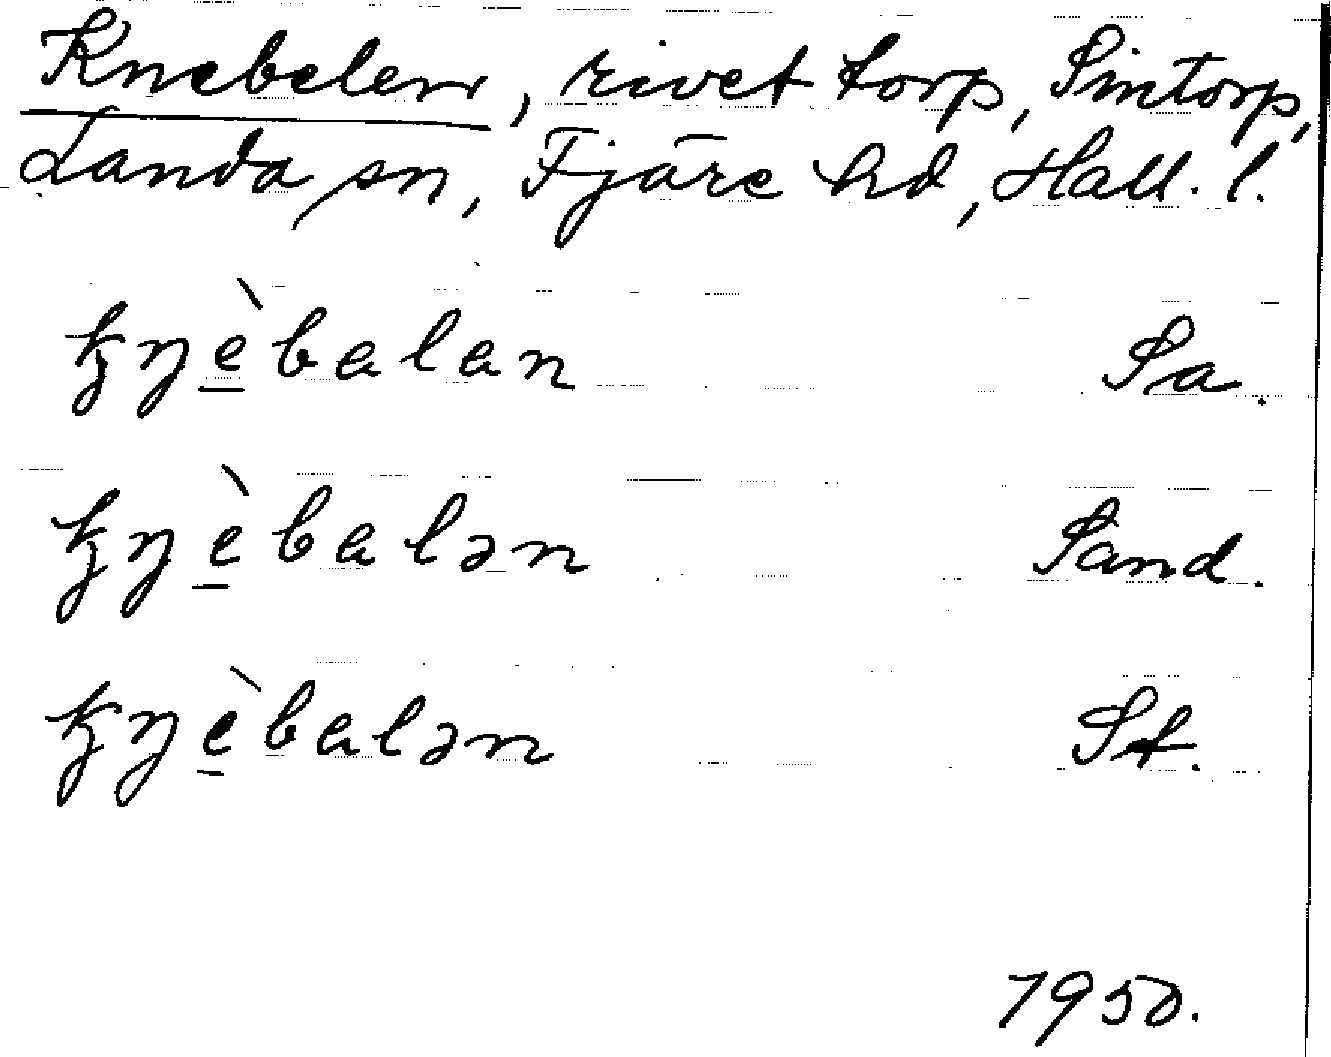 Knebelen, rivet torp, Simtorp,
Landa sn, Fjäre hd, Hall. l.
kņè̱balan Sa.
kņè̱balən Sand.
kņè̱balən St.
1950.